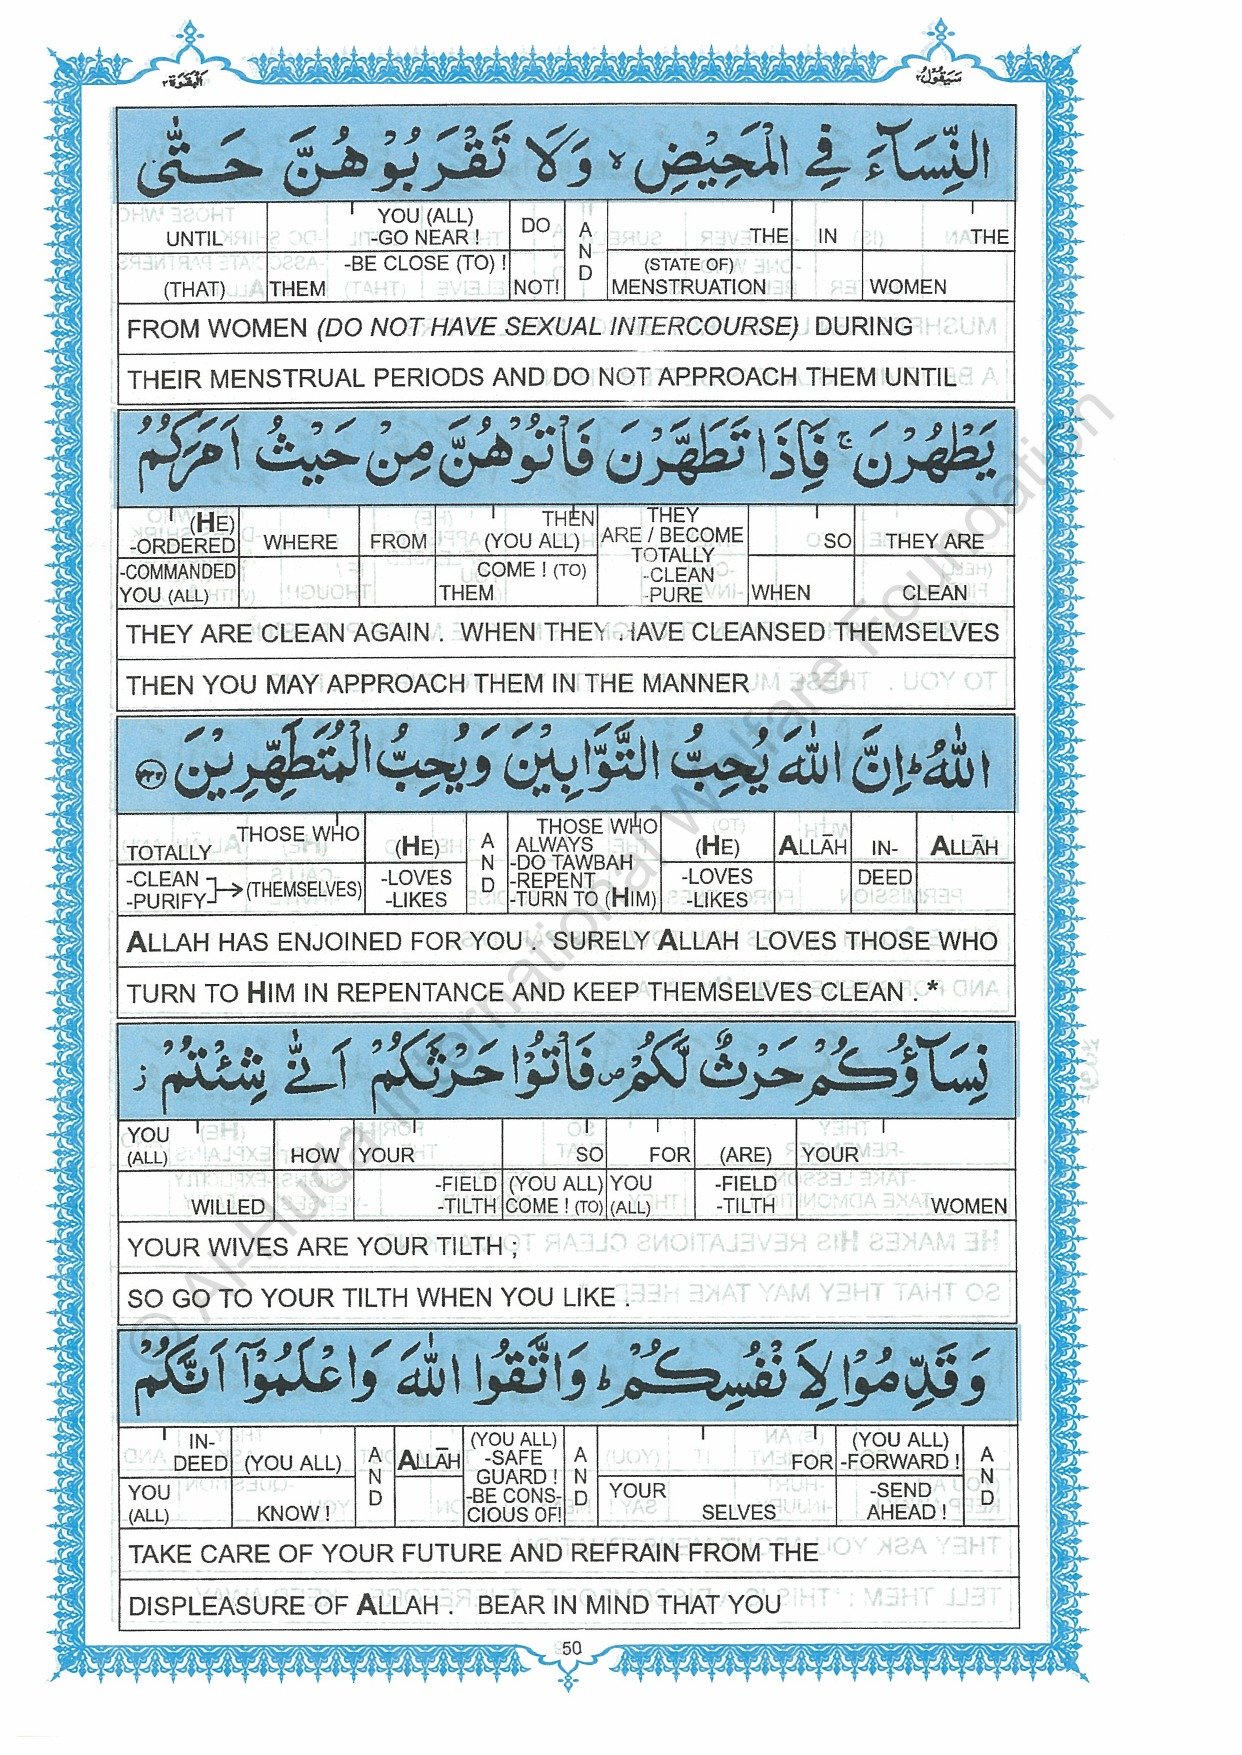 البقرة ٢
سيقول ٢
النِّسَآءَ فِي الْمَحِيْضِ ۙ وَلَا تَقْرَبُوْهُنَّ حَتّٰى
UNTIL YOU (ALL) -GO NEAR ! DO AND THE IN THE
(THAT) THEM -BE CLOSE (TO) ! NOT! (STATE OF) MENSTRUATION WOMEN
FROM WOMEN (DO NOT HAVE SEXUAL INTERCOURSE) DURING
THEIR MENSTRUAL PERIODS AND DO NOT APPROACH THEM UNTIL
يَطْهُرْنَ ۚ فَاِذَا تَطَهَّرْنَ فَاْتُوْهُنَّ مِنْ حَيْثُ اَمَرَكُمُ
(HE) -ORDERED WHERE FROM THEN (YOU ALL) THEY ARE / BECOME TOTALLY SO THEY ARE
-COMMANDED YOU (ALL) THEM COME ! (TO) -CLEAN -PURE WHEN CLEAN
THEY ARE CLEAN AGAIN . WHEN THEY HAVE CLEANSED THEMSELVES
THEN YOU MAY APPROACH THEM IN THE MANNER
اللّٰهُ ؕ اِنَّ اللّٰهَ يُحِبُّ التَّوَّابِيْنَ وَيُحِبُّ الْمُتَطَهِّرِيْنَ ۝٢٢٢
TOTALLY THOSE WHO (HE) AND THOSE WHO ALWAYS (HE) ALLĀH IN- ALLĀH
-CLEAN -PURIFY (THEMSELVES) -LOVES -LIKES -DO TAWBAH -REPENT -TURN TO (HIM) -LOVES -LIKES DEED
ALLAH HAS ENJOINED FOR YOU . SURELY ALLAH LOVES THOSE WHO
TURN TO HIM IN REPENTANCE AND KEEP THEMSELVES CLEAN . *
نِسَآؤُكُمْ حَرْثٌ لَّكُمْ ۪ فَاْتُوْا حَرْثَكُمْ اَنّٰى شِئْتُمْ ؗ
YOU (ALL) HOW YOUR SO FOR (ARE) YOUR
WILLED -FIELD -TILTH (YOU ALL) COME ! (TO) YOU (ALL) -FIELD -TILTH WOMEN
YOUR WIVES ARE YOUR TILTH ;
SO GO TO YOUR TILTH WHEN YOU LIKE .
وَقَدِّمُوْا لِاَنْفُسِكُمْ ؕ وَاتَّقُوا اللّٰهَ وَاعْلَمُوْٓا اَنَّكُمْ
IN-DEED (YOU ALL) AND ALLĀH (YOU ALL) -SAFE GUARD ! AND FOR (YOU ALL) -FORWARD ! AND
YOU (ALL) KNOW ! -BE CONS-CIOUS OF! YOUR SELVES -SEND AHEAD !
TAKE CARE OF YOUR FUTURE AND REFRAIN FROM THE
DISPLEASURE OF ALLAH . BEAR IN MIND THAT YOU
50
© Al-Huda International Welfare Foundation